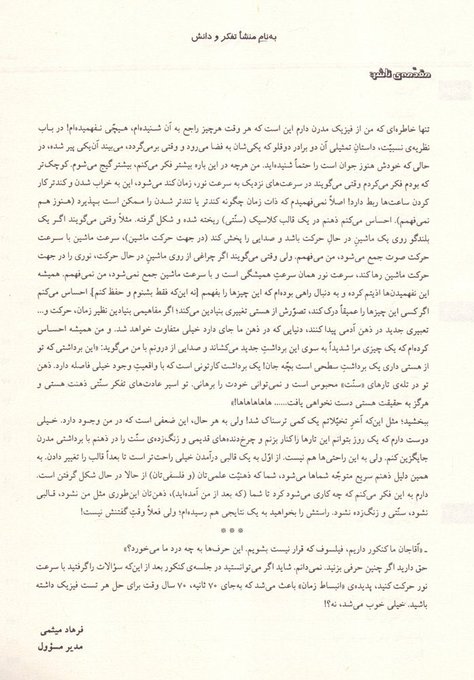 به‌نام منشأ تفکر و دانش
مقدّمه‌ی ناشر:
تنها خاطره‌ای که من از فیزیک مدرن دارم این است که هر وقت هرچیز راجع به آن شنیده‌ام، هیچّی نفهمیده‌ام! در باب
نظریه‌ی نسبیّت، داستانِ تمثیلی آن دو برادر دوقلو که یکی‌شان به فضا می‌رود و وقتی برمی‌گردد، می‌بیند آن‌یکی پیر شده، در
حالی که خودش هنوز جوان است را حتماً شنیده‌اید. من هرچه در این باره بیشتر فکر می‌کنم، بیشتر گیج می‌شوم. کوچک‌تر
که بودم فکر می‌کردم وقتی می‌گویند در سرعت‌های نزدیک به سرعت نور، زمان کند می‌شود، این به خراب شدن و کندتر کار
کردن ساعت‌ها ربط دارد! اصلاً نمی‌فهمیدم که ذات زمان چگونه کندتر یا تندتر شدن را ممکن است بپذیرد (هنوز هم
نمی‌فهمم). احساس می‌کنم ذهنم در یک قالب کلاسیک (سنّتی) ریخته شده و شکل گرفته. مثلاً وقتی می‌گویند اگر یک
بلندگو روی یک ماشینِ در حالِ حرکت باشد و صدایی را پخش کند (در جهت حرکت ماشین)، سرعت ماشین با سرعت
حرکت صوت جمع می‌شود، من می‌فهمم. ولی وقتی می‌گویند اگر چراغی از روی ماشینِ در حال حرکت، نوری را در جهت
حرکت ماشین رها کند، سرعت نور همان سرعتِ همیشگی است و با سرعت ماشین جمع نمی‌شود، من نمی‌فهمم. همیشه
این نفهمیدن‌ها اذیتم کرده و به دنبال راهی بوده‌ام که این چیزها را بفهمم [نه این‌که فقط بشنوم و حفظ کنم]. احساس می‌کنم
اگر کسی این چیزها را عمیقاً درک کند، تصوّرش از هستی تغییری بنیادین می‌کند؛ اگر مفاهیمی بنیادین نظیر زمان، حرکت و...
تعبیری جدید در ذهن آدمی پیدا کنند، دنیایی که در ذهن ما جای دارد خیلی متفاوت خواهد شد. و من همیشه احساس
کرده‌ام که یک چیزی مرا شدیداً به سوی این برداشتِ جدید می‌کشاند و صدایی از درونم با من می‌گوید: «این برداشتی که تو
از هستی داری یک برداشتِ سطحی است بچّه جان! یک برداشت کارتونی است که با واقعیتِ وجود خیلی فاصله دارد. ذهن
تو در تله‌ی تارهای «سنّت» محبوس است و نمی‌توانی خودت را برهانی. تو اسیر عادت‌های تفکر سنّتی ذهنت هستی و
هرگز به حقیقت هستی دست نخواهی یافت...... هاهاهاهاها!»
ببخشید؛ مثل این‌که آخر تخیّلاتم یک کمی ترسناک شد! ولی به هر حال، این ضعفی است که در من وجود دارد. خیلی
دوست دارم که یک روز بتوانم این تارها را کنار بزنم و چرخ‌دنده‌های قدیمی و زنگ‌زده‌ی سنّت را در ذهنم با برداشتی مدرن
جایگزین کنم. ولی به این راحتی‌ها هم نیست. از اوّل به یک قالبی درآمدن خیلی راحت‌تر است تا بعداً قالب را تغییر دادن. به
همین دلیل ذهنم سریع متوجّه شماها می‌شود، شما که ذهنیّت علمی‌تان (و فلسفی‌تان) از حالا در حال شکل گرفتن است.
دارم به این فکر می‌کنم که چه کاری می‌شود کرد تا شما (که بعد از من آمده‌اید)، ذهن‌تان این‌طوری مثل من نشود، قالبی
نشود، سنّتی و زنگ‌زده نشود. راستش را بخواهید به یک نتایجی هم رسیده‌ام؛ ولی فعلاً وقتِ گفتنش نیست!
* * *
ـ «آقاجان ما کنکور داریم، فیلسوف که قرار نیست بشویم. این حرف‌ها به چه درد ما می‌خورد؟»
حق دارید اگر چنین حرفی بزنید. نمی‌دانم. شاید اگر می‌توانستید در جلسه‌ی کنکور بعد از این‌که سؤالات را گرفتید با سرعت
نور حرکت کنید، پدیده‌ی «انبساط زمان» باعث می‌شد که به‌جای ۷۰ ثانیه، ۷۰ سال وقت برای حل هر تست فیزیک داشته
باشید. خیلی خوب می‌شد، نه؟!
فرهاد میثمی
مدیر مسؤول